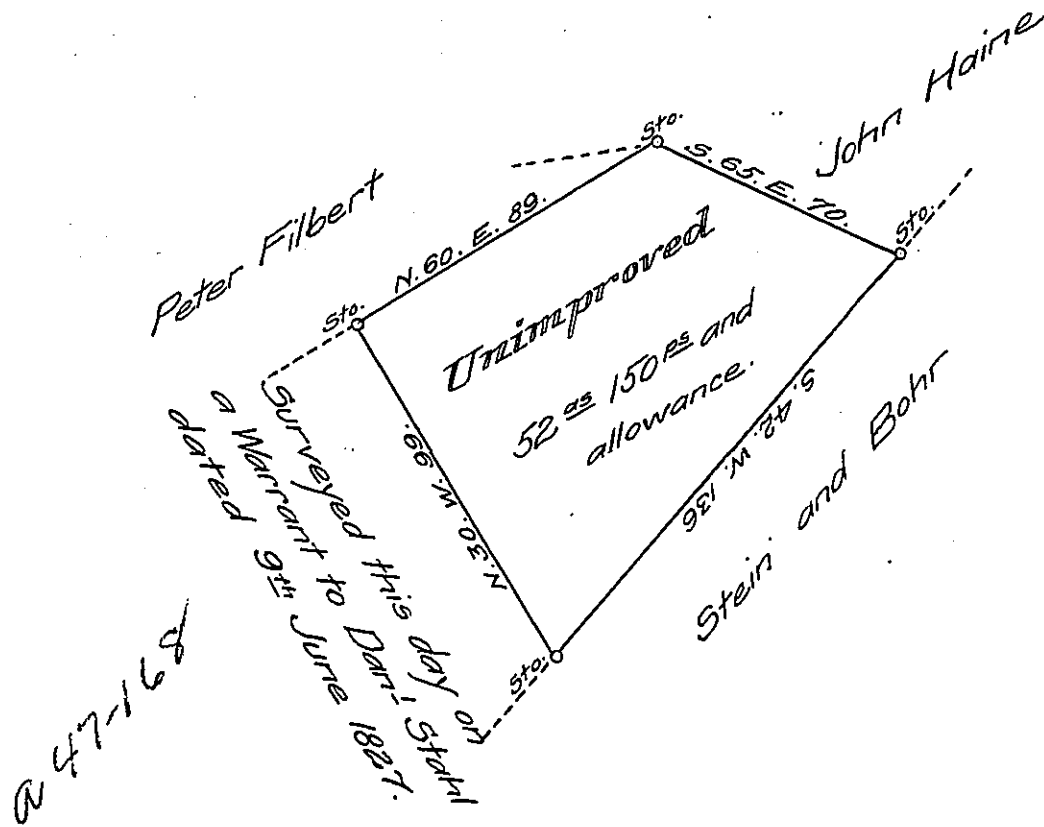 Peter Filbert
John Haine
Sto.
N. 60. E. 89.
Sto.
S. 65. E. 70.
Sto.
Unimproved
52 as 150 ps and
allowance.
S. 42. W. 136
Stein and Bohr
N. 30. W. 99.
Sto.
Surveyed this day on
a Warrant to Danl Stahl
dated 9th June 1827.
a 47-168